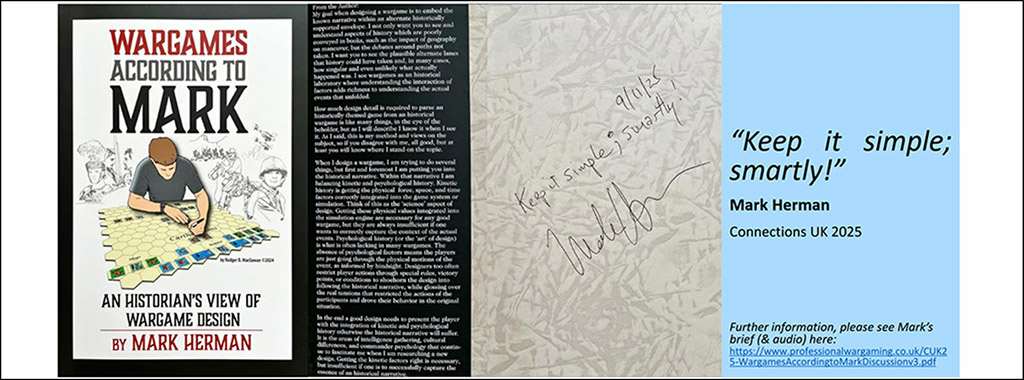 WARGAMES
ACCORDING TO
MARK
by Rodger B. MacGowan ©2024
AN HISTORIAN'S VIEW OF
WARGAME DESIGN
BY MARK HERMAN
From the Author:
My goal when designing a wargame is to embed the
known narrative within an alternate historically
supported envelope. I not only want you to see and
understand aspects of history which are poorly
conveyed in books, such as the impact of geography
on maneuver, but the debates around paths not
taken. I want you to see the plausible alternate lanes
that history could have taken and, in many cases,
how singular and even unlikely what actually
happened was. I see wargames as an historical
laboratory where understanding the interaction of
factors adds richness to understanding the actual
events that unfolded.
How much design detail is required to parse an
historically themed game from an historical
wargame is like many things, in the eye of the
beholder, but as I will describe I know it when I see
it. As I said, this is my method and views on the
subject, so if you disagree with me, all good, but at
least you will know where I stand on the topic.
When I design a wargame, I am trying to do several
things, but first and foremost I am putting you into
the historical narrative. Within that narrative I am
balancing kinetic and psychological history. Kinetic
history is getting the physical force, space, and time
factors correctly integrated into the game system or
simulation. Think of this as the 'science' aspect of
design. Getting these physical values integrated into
the simulation engine are necessary for any good
wargame, but they are always insufficient if one
wants to correctly capture the context of the actual
events. Psychological history (or the 'art' of design)
is what is often lacking in many wargames. The
absence of psychological factors means the players
are just going through the physical motions of the
event, as informed by hindsight. Designers too often
restrict player actions through special rules, victory
points, or conditions to shoehorn the design into
following the historical narrative, while glossing over
the real tensions that restricted the actions of the
participants and drove their behavior in the original
situation.
In the end a good design needs to present the player
with the integration of kinetic and psychological
history otherwise the historical narrative will suffer.
It is the areas of intelligence gathering, cultural
differences, and commander psychology that continue
to fascinate me when I am researching a new
design. Getting the kinetic factors right is necessary,
but insufficient if one is to successfully capture the
essence of an historical narrative.
9/11/25
Keep it simple; smartly.
“Keep it simple;
smartly!”
Mark Herman
Connections UK 2025
Further information, please see Mark's
brief (& audio) here:
https://www.professionalwargaming.co.uk/CUK2
5-WargamesAccordingtoMarkDiscussionv3.pdf